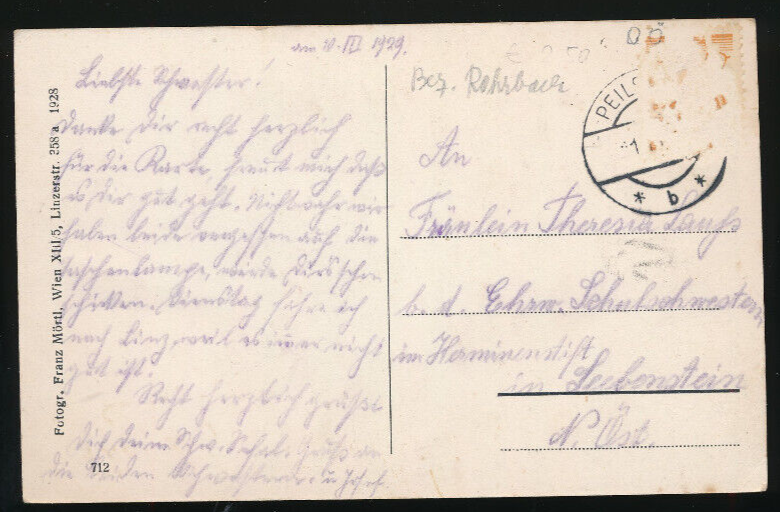 am 10. III 1929.
Liebste Schwester!
Danke Dir recht herzlich
für die Karte, freut mich daß
es Dir gut geht. Nicht wahr wir
haben beide vergessen auf die
Taschenlampe, werde Dirs schon
schicken. Dienstag fahre ich
nach Linz, weil es immer nicht
gut ist.
Recht herzlich grüßt
Dich Deine Schw. Gruß an
die beiden Schwestern u. Josef.
712
Fotogr. Franz Mörtl, Wien XIII/5, Linzerstr. 258 a 1928
OÖ
Bez. Rohrbach
PEIL
1
* b *
An
Fräulein Theresia
b. d. Ehrw. Schulschwestern
im Herminenstift
in Seebenstein
N. Öst.